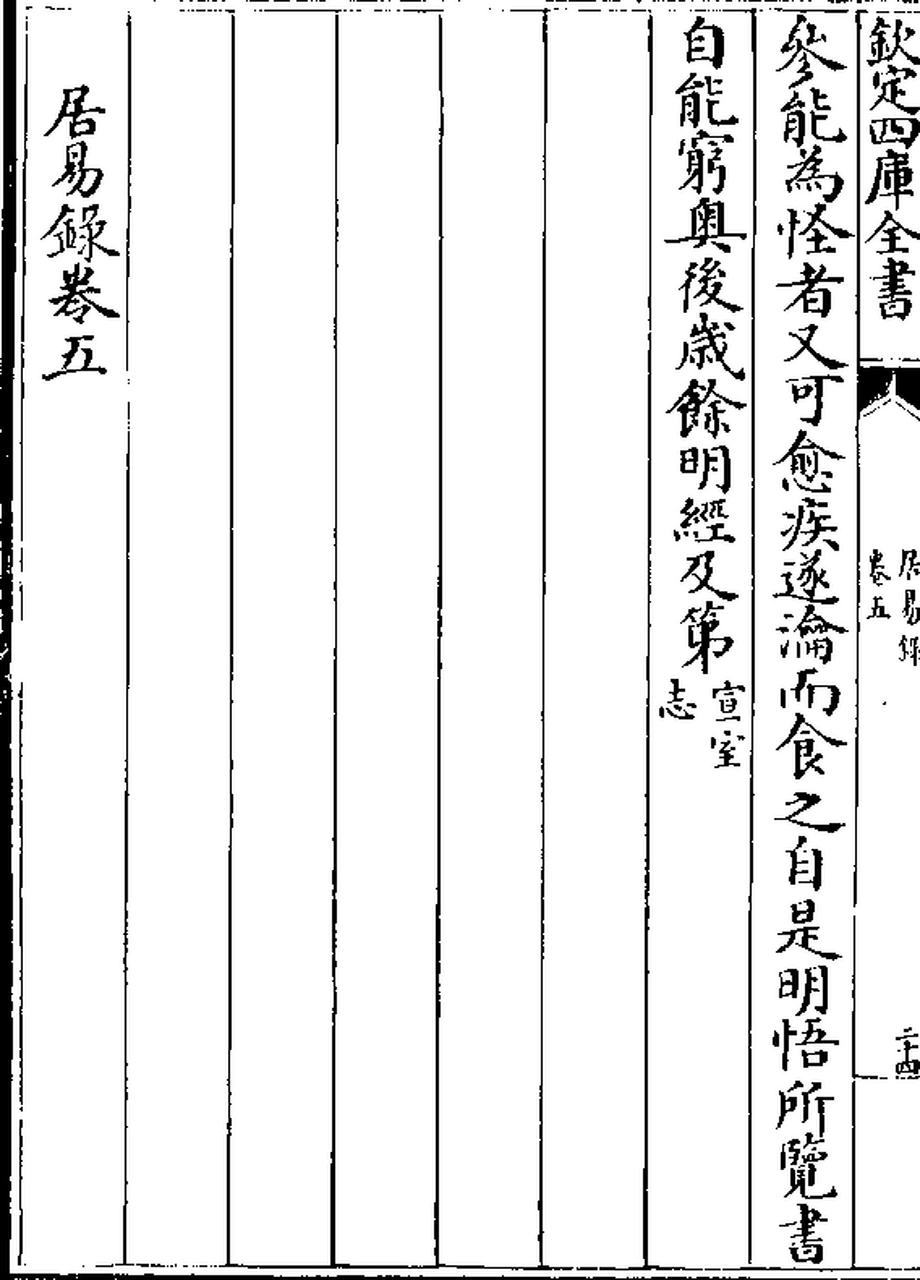 欽定四庫全書
居易錄
卷五
二十四
參能為怪者又可愈疾遂瀹而食之自是明悟所覽書
自能窮奥後歲餘明經及第宣室志
居易錄卷五